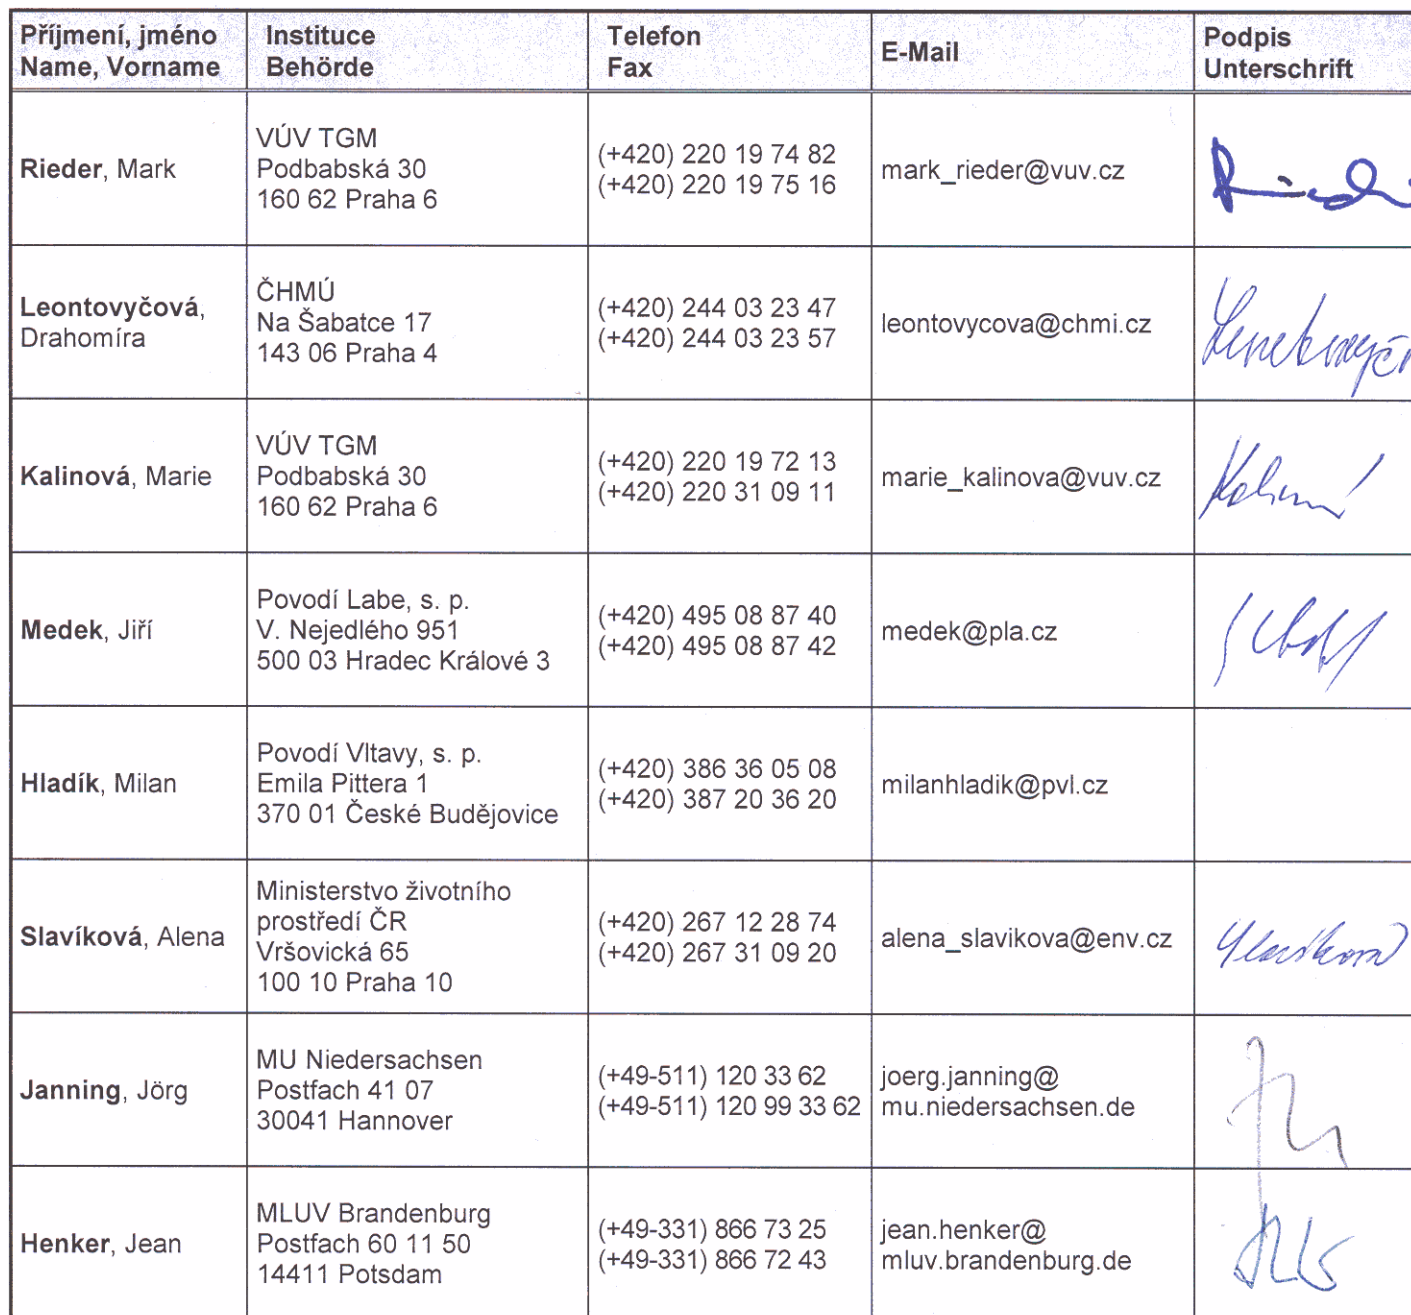 Příjmení, jméno
Name, Vorname
Instituce
Behörde
Telefon
Fax
E-Mail
Podpis
Unterschrift
Rieder, Mark
VÚV TGM
Podbabská 30
160 62 Praha 6
(+420) 220 19 74 82
(+420) 220 19 75 16
mark_rieder@vuv.cz
Leontovyčová,
Drahomíra
ČHMÚ
Na Šabatce 17
143 06 Praha 4
(+420) 244 03 23 47
(+420) 244 03 23 57
leontovycova@chmi.cz
Kalinová, Marie
VÚV TGM
Podbabská 30
160 62 Praha 6
(+420) 220 19 72 13
(+420) 220 31 09 11
marie_kalinova@vuv.cz
Medek, Jiří
Povodí Labe, s. p.
V. Nejedlého 951
500 03 Hradec Králové 3
(+420) 495 08 87 40
(+420) 495 08 87 42
medek@pla.cz
Hladík, Milan
Povodí Vltavy, s. p.
Emila Pittera 1
370 01 České Budějovice
(+420) 386 36 05 08
(+420) 387 20 36 20
milanhladik@pvl.cz
Slavíková, Alena
Ministerstvo životního
prostředí ČR
Vršovická 65
100 10 Praha 10
(+420) 267 12 28 74
(+420) 267 31 09 20
alena_slavikova@env.cz
Janning, Jörg
MU Niedersachsen
Postfach 41 07
30041 Hannover
(+49-511) 120 33 62
(+49-511) 120 99 33 62
joerg.janning@
mu.niedersachsen.de
Henker, Jean
MLUV Brandenburg
Postfach 60 11 50
14411 Potsdam
(+49-331) 866 73 25
(+49-331) 866 72 43
jean.henker@
mluv.brandenburg.de